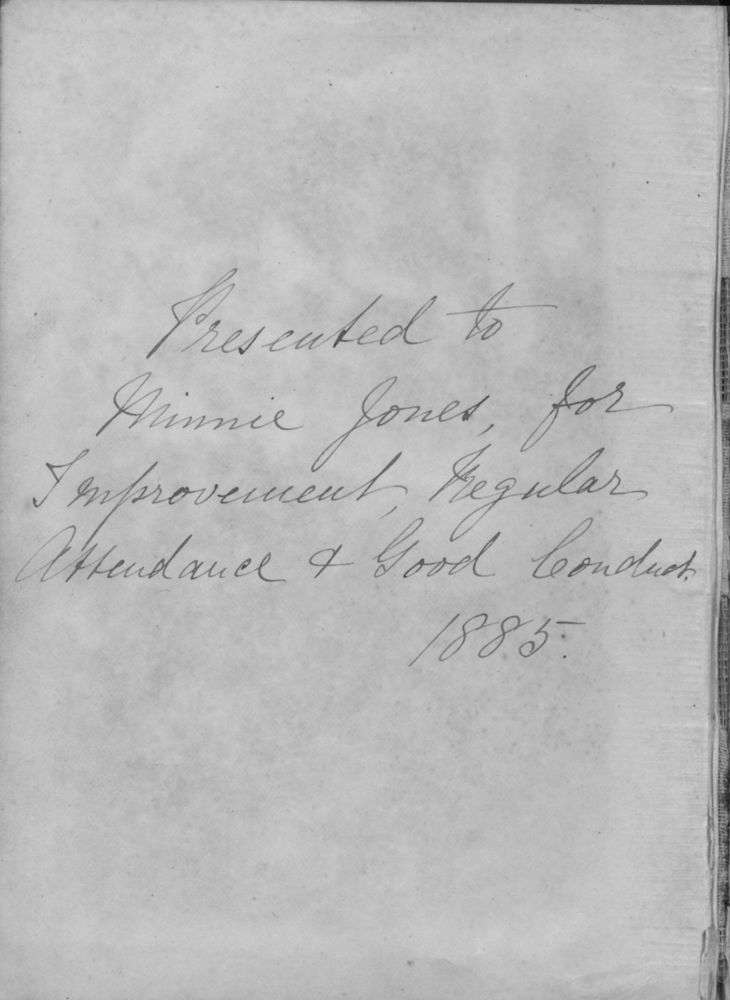 Presented to
Minnie Jones, for
Improvement, Regular
Attendance & Good Conduct.
1885.